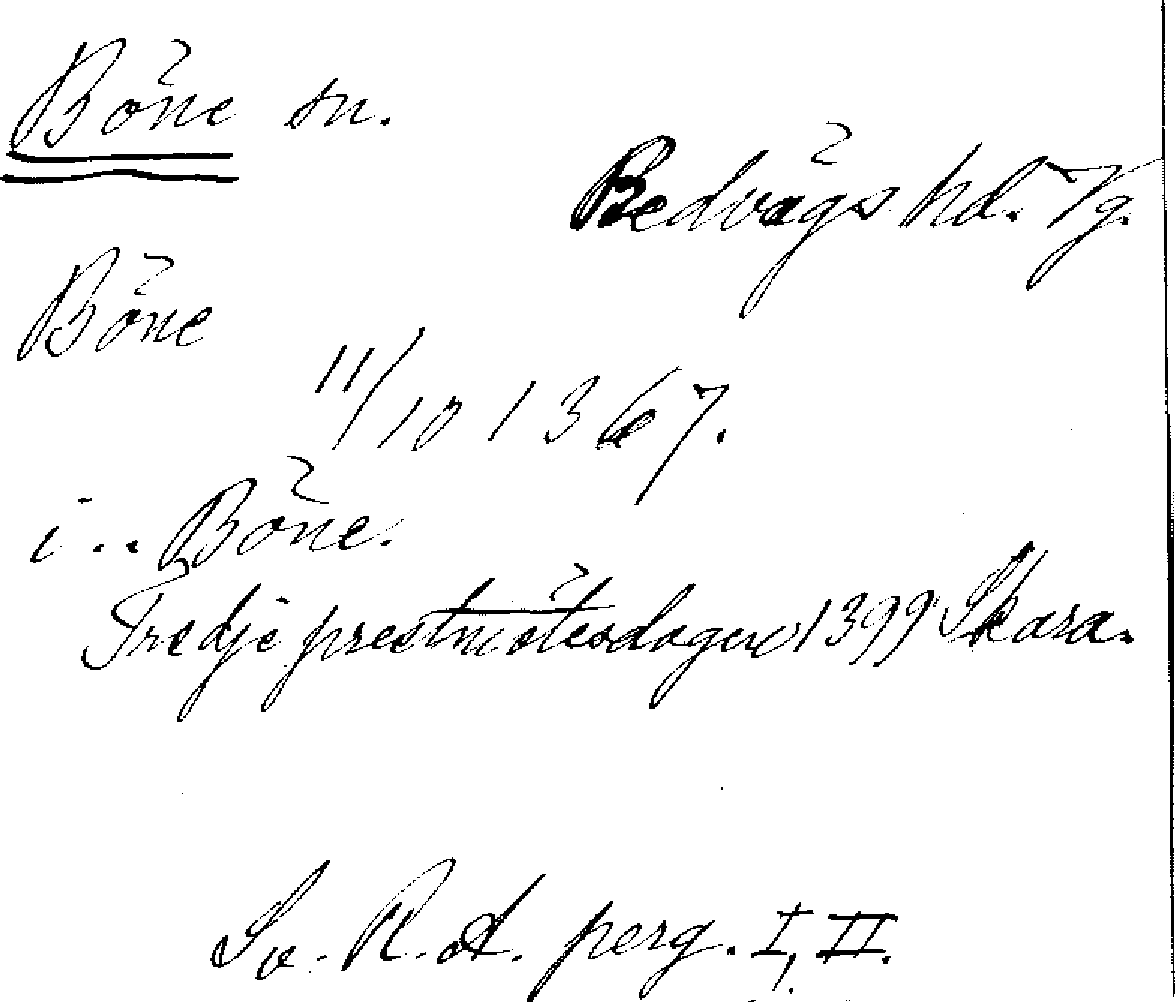 Böne sn.
Redvägs hd. Vg.
Böne
11/10 1367.
i .. Böne.
Tredje prestmötesdagen 1399 Skara.
Sv. R. A. perg. I, II.